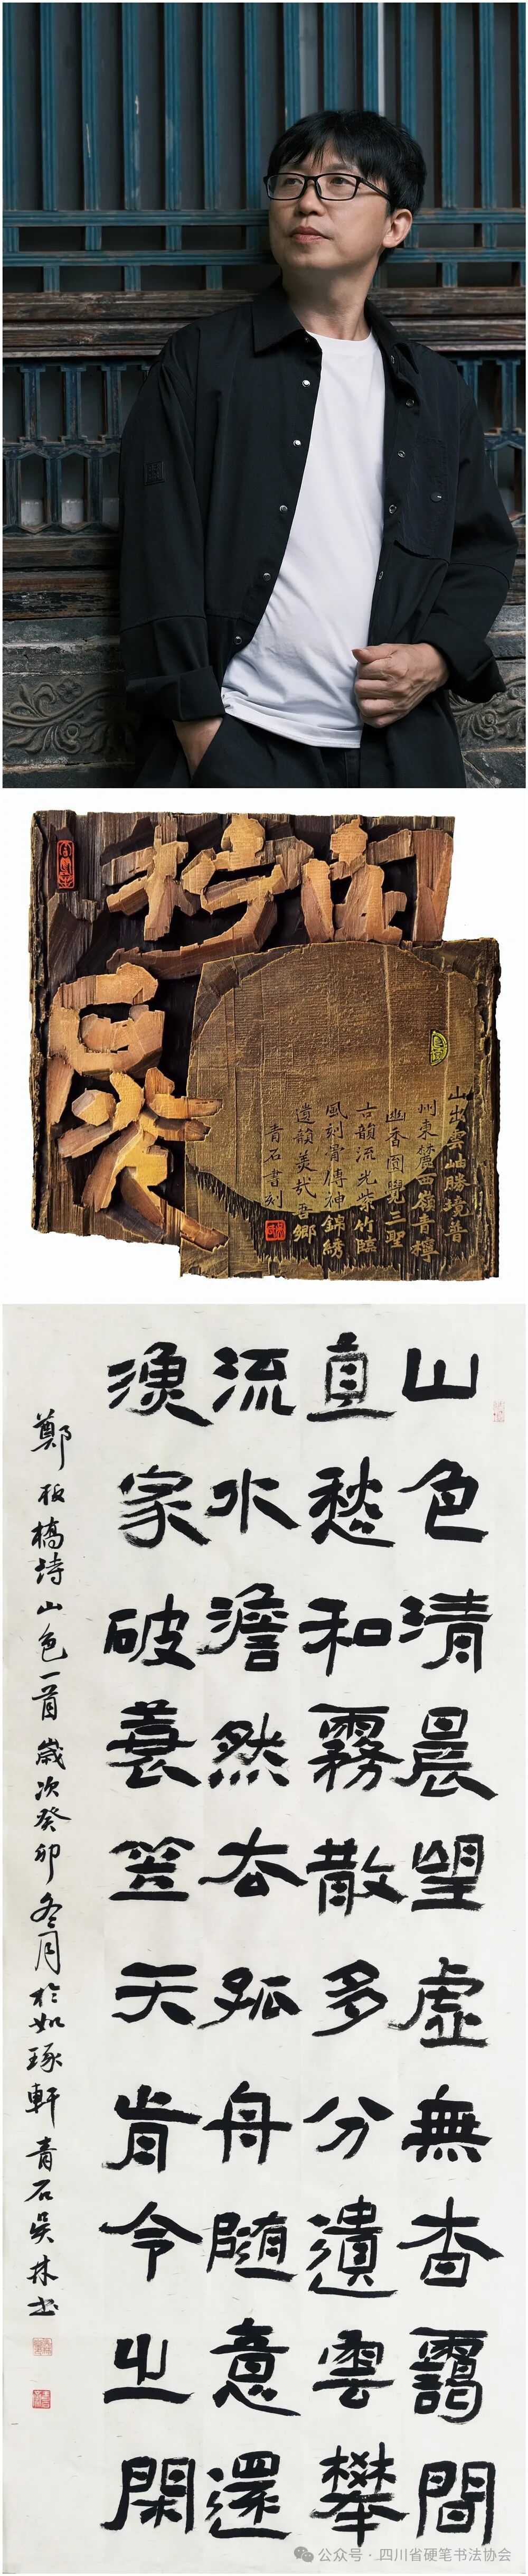 山出雲岫勝境普
州東麓西嶺青檀
幽香圓覺三聖
古韻流光紫竹臨
風刻骨傳神錦綉
遺韻美哉吾鄉
青石書刻
山色清晨望虛無杳靄間
直愁和霧散多分遺雲攀
流水澹然去孤舟隨意還
漁家破蓑笠天肯令之閑
鄭板橋詩山色一首歲次癸卯冬月於如琢軒青石吳林書
公众号 · 四川省硬笔书法协会